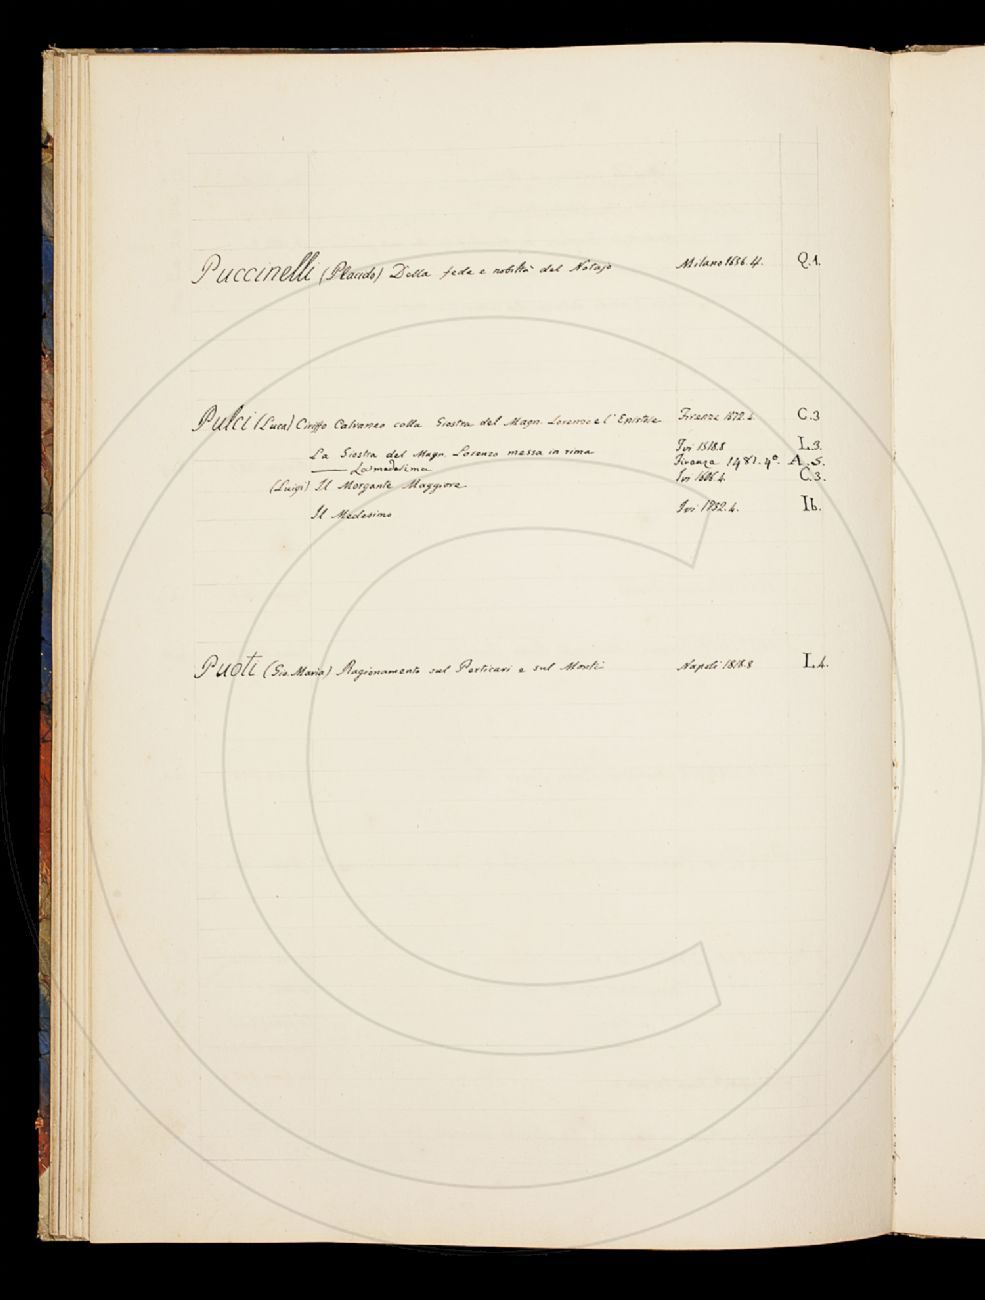 Puccinelli (Placido) Della fede e nobiltà del Notajo Milano 1656. 4. Q.1.
Pulci (Luca) Ciriffo Calvaneo colla Giostra del Magn. Lorenzo e l'Epistole Firenze 1572. 4 C.3
La Giostra del Magn. Lorenzo messa in rima Ivi 1518.8 L.3.
La medesima Firenze 1481. 4º. A.5.
(Luigi) Il Morgante Maggiore Ivi 1606. 4. C.3.
Il Medesimo Ivi 1732. 4. Ib.
Puoti (Gio. Maria) Ragionamento sul Perticari e sul Monti Napoli 1818.8 L.4.